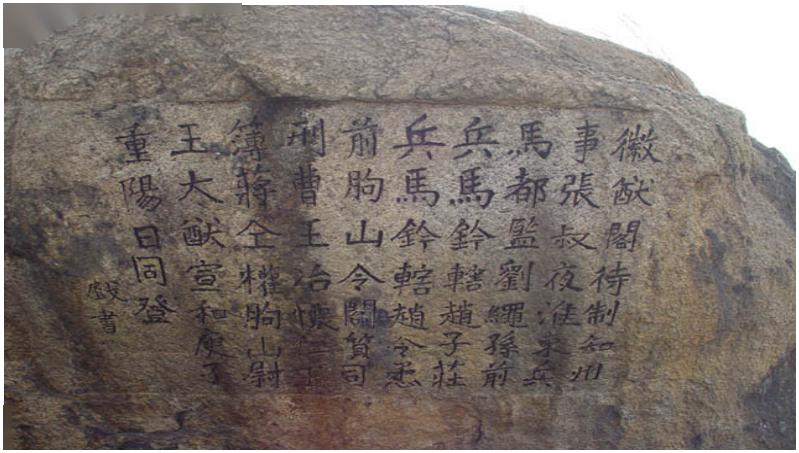 徽猷閣待制知州
事張叔夜淮東兵
馬都監劉繩孫前
兵馬鈐轄趙子莊
兵馬鈐轄趙令悉
前朐山令閻質司
刑曹王冶懷仁
簿蔣仝權朐山尉
王大猷宣和庚子
重陽日同登
戲書